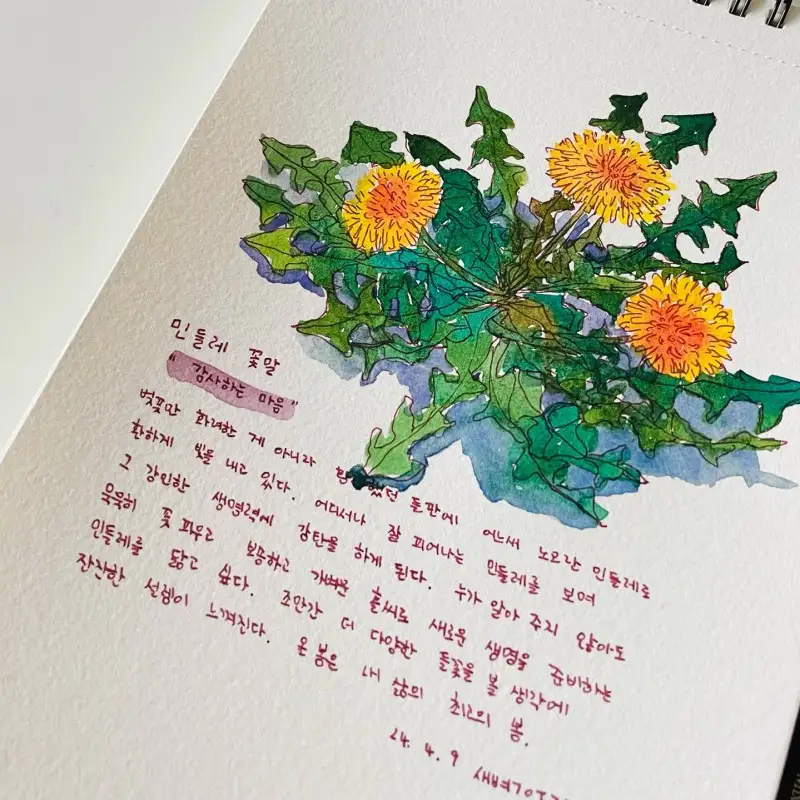 민들레 꽃말
" 감사하는 마음 "
벚꽃만 화려한 게 아니라 했던 들판에 어느새 노오란 민들레로
환하게 빛을 내고 있다. 어디서나 잘 피어나는 민들레를 보며
그 강인한 생명력에 감탄을 하게 된다. 누가 알아 주지 않아도
묵묵히 꽃 피우고 뽀송하고 가벼운 홀씨로 새로운 생명을 준비하는
민들레를 닮고 싶다. 조만간 더 다양한 들꽃을 볼 생각에
잔잔한 설렘이 느껴진다. 올 봄은 내 삶의 최고의 봄.
24. 4. 9